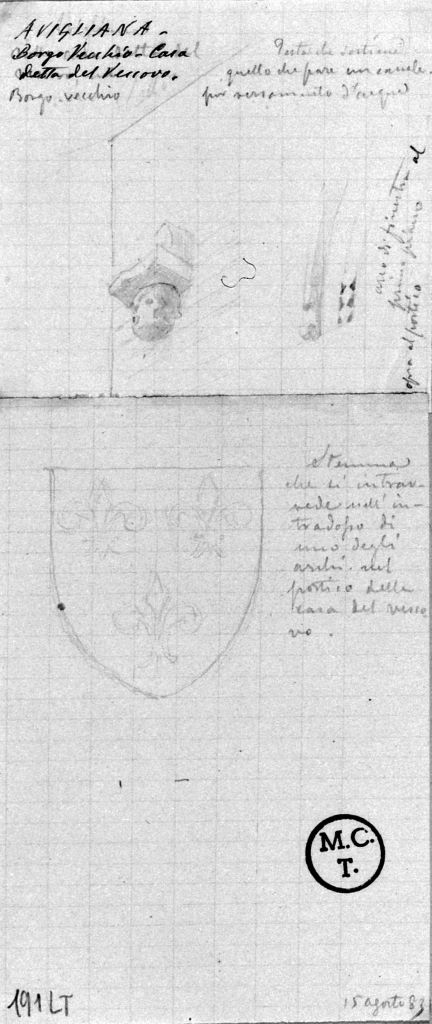 AVIGLIANA -
Borgo Vecchio - Casa
detta del Vescovo.
Borgo vecchio
Testa che sostiene
quello che pare un canale
per versamento d'acqua
arco di finestra al
primo piano
sopra al portico
Stemma
che si intrav-
vede nell'in-
tradosso di
uno degli
archi nel
portico della
casa del vesco
vo.
M.C.
T.
191 LT
15 agosto 83